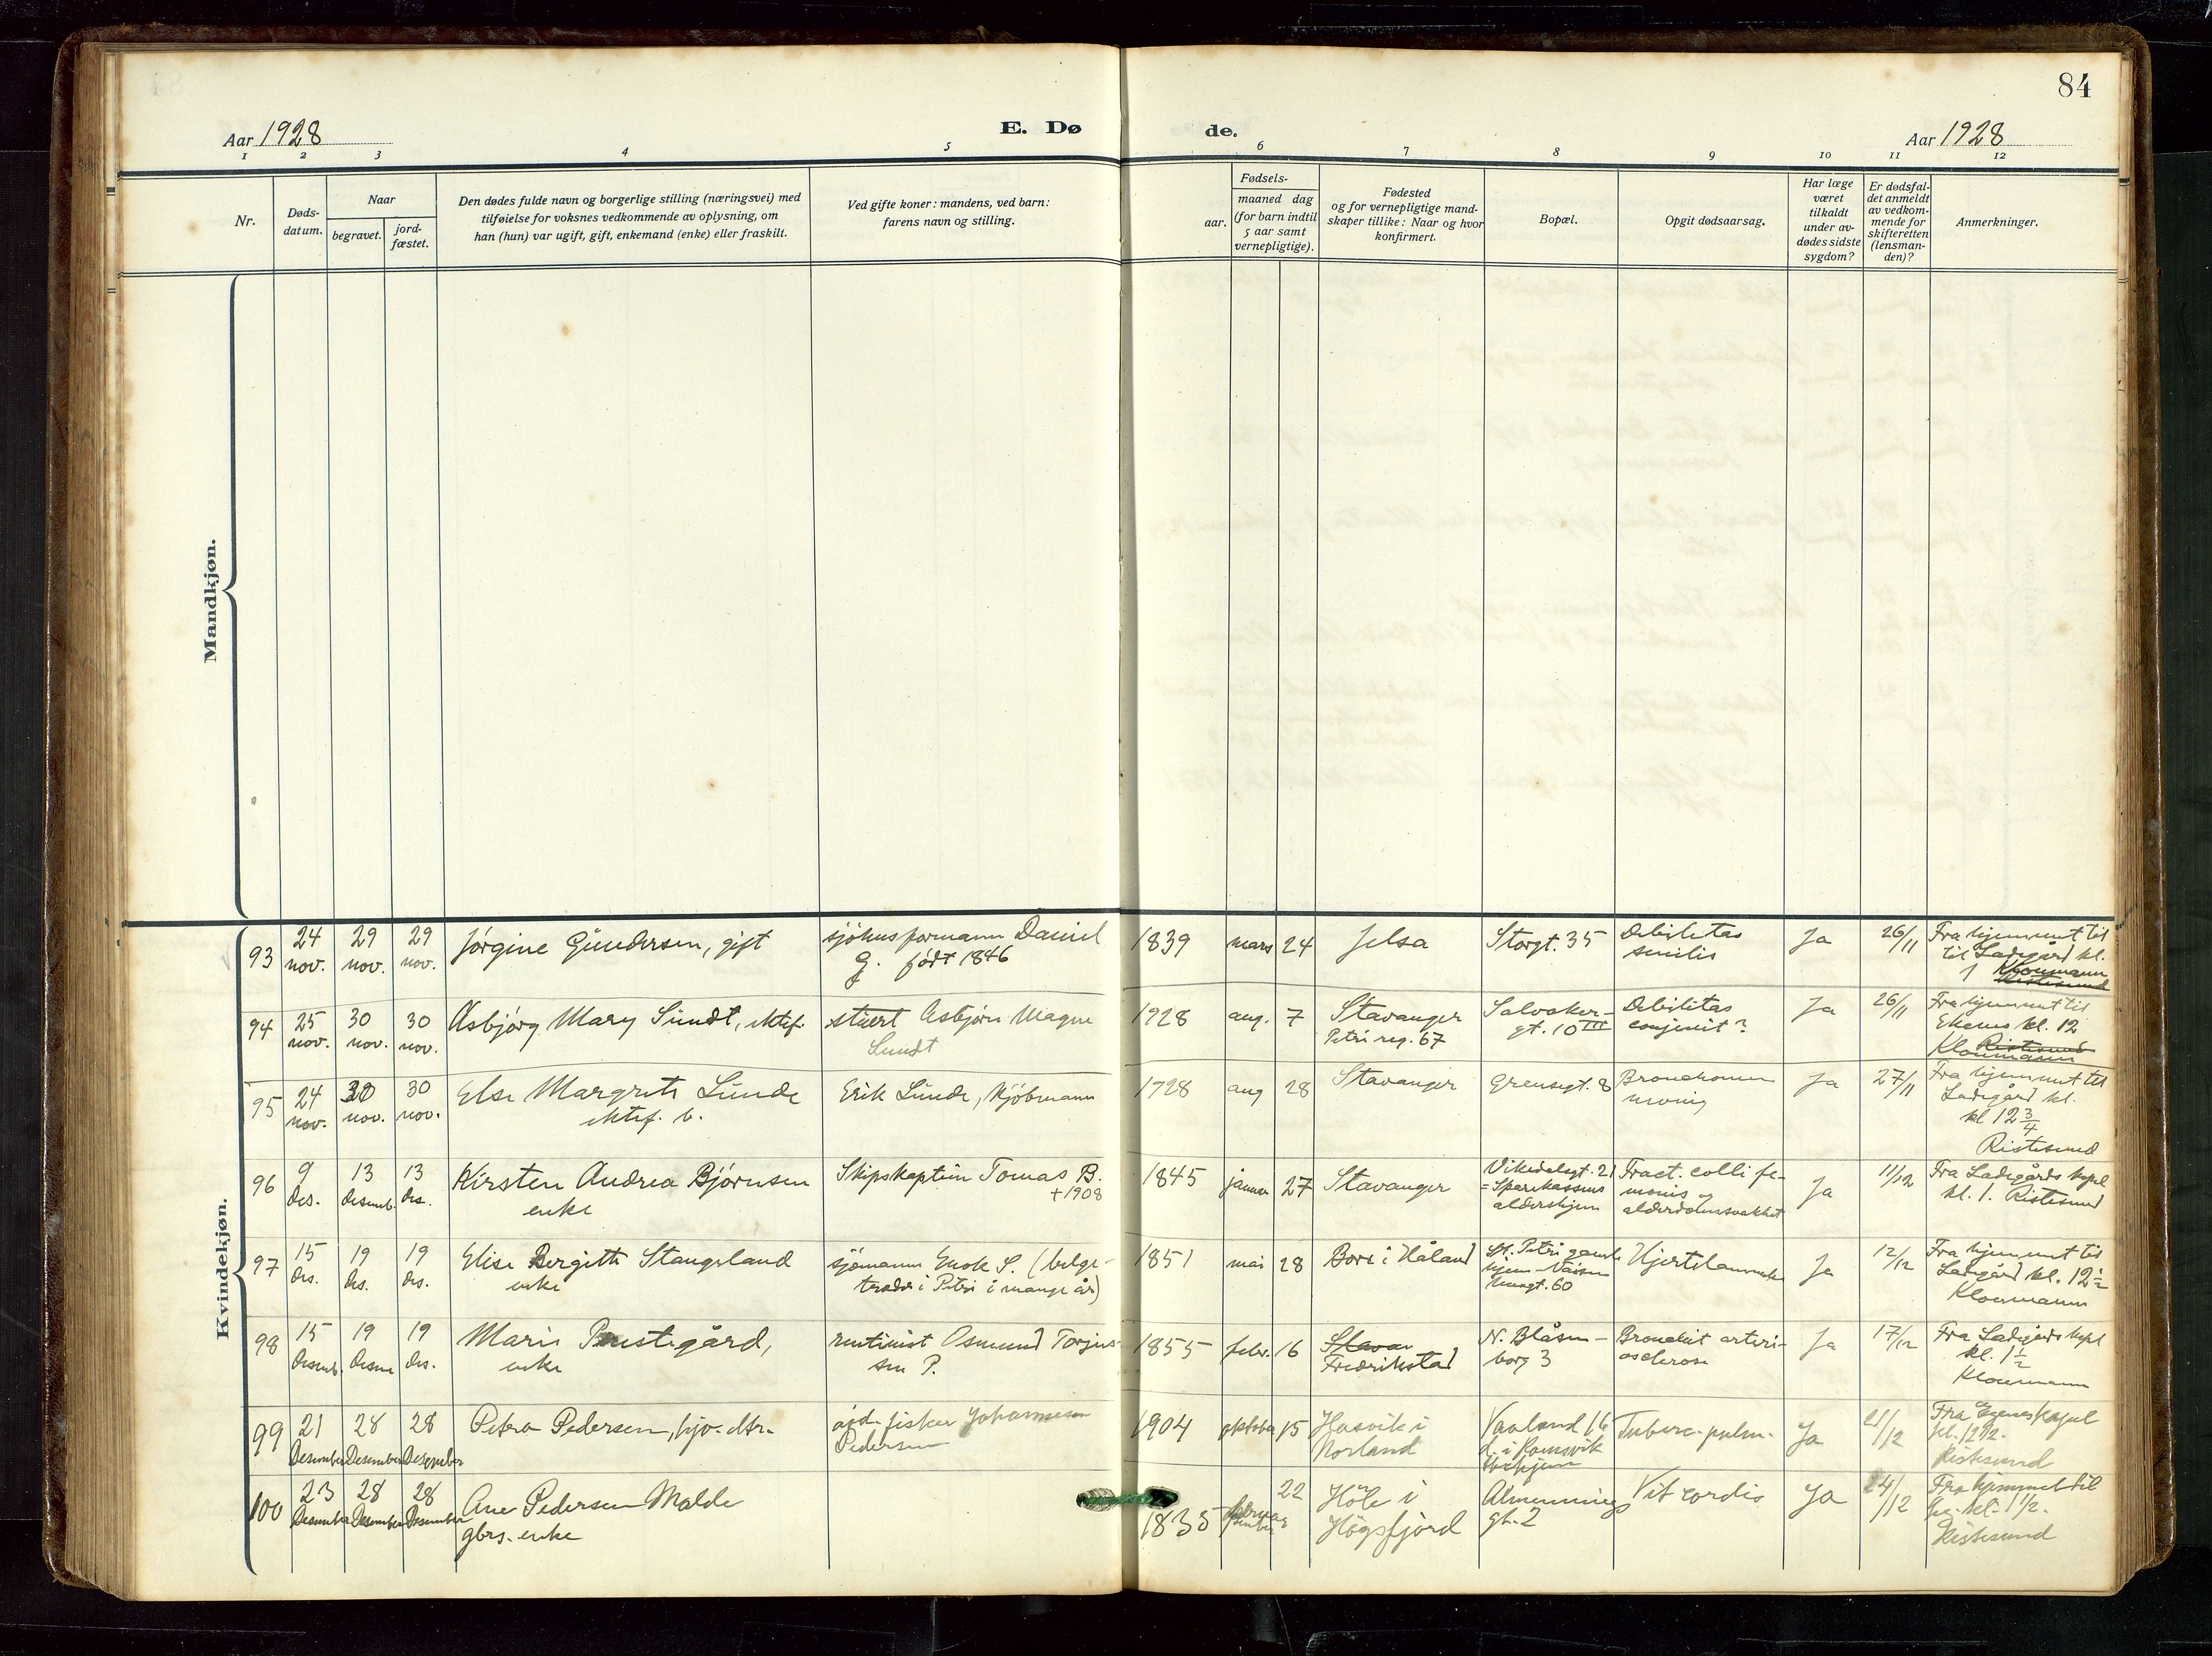 84
Aar 1928
E. Dø
de.
Aar 1928
1 2 3 4 5 6 7 8 9 10 11 12
Nr.
Døds-
datum.
Naar
begravet.
jord-
fæstet.
Den dødes fulde navn og borgerlige stilling (næringsvei) med
tilføielse for voksnes vedkommende av oplysning, om
han (hun) var ugift, gift, enkemand (enke) eller fraskilt.
Ved gifte koner: mandens, ved barn:
farens navn og stilling.
Fødsels-
aar.
maaned dag
(for barn indtil
5 aar samt
vernepligtige).
Fødested
og for vernepligtige mand-
skaper tillike: Naar og hvor
konfirmert.
Bopæl.
Opgit dødsaarsag.
Har læge
været
tilkaldt
under av-
dødes sidste
sygdom?
Er dødsfal-
det anmeldt
av vedkom-
mende for
skifteretten
(lensman-
den)?
Anmerkninger.
Mandkjøn.
Kvindekjøn.
93
24 nov.
29 nov.
29 nov.
Jörgine Gundersen, gift
sjöhusformann Daniel
G. född 1846
1839
mars 24
Jelsa
Storgt. 35
Debilitas
senilis
Ja
26/11
Fra hjemmet til
til Ladegård kl.
1 Kloumann
Ristesund
94
25 nov.
30 nov.
30 nov.
Asbjörg Mary Sundt, ektef.
stuert Asbjörn Magne
Sundt
1928
aug. 7
Stavanger
Petri reg. 67
Solvaker-
gt. 10 III
Debilitas
conjenit?
Ja
26/11
Fra hjemmet til
Ekenes kl. 12
Ristesund
Kloumann
95
24 nov.
30 nov.
30 nov.
Else Margrete Lunde
ektef. b.
Erik Lunde, kjöbmann
1928
aug 28
Stavanger
Grensegt. 8
Bronchopneu
moni
Ja
27/11
Fra hjemmet til
Ladegård kl.
kl 12 3/4
Ristesund
96
9 des.
13 desemb.
13 des.
Kirsten Andrea Björnsen
enke
Skipskaptein Tomas B.
+ 1908
1845
januar 27
Stavanger
Vikedalsgt. 21
= Sparekassens
aldershjem
Fract. colli fe-
moris og
alderdomssvakhet
Ja
11/12
Fra Ladegårds kapel
kl. 1. Ristesund
97
15 des.
19 des.
19 des.
Elise Bergitte Stangeland
enke
sjömann Enok S. (belge-
treder i Petri i mange år)
1851
mai 28
Bore i Håland
St. Petri gamle
hjem
gt. 60
Hjertelammelse
Ja
12/12
Fra hjemmet til
Ladegård kl. 12 1/2
Kloumann
98
15 Desemb.
19 Desem
19 des.
Marie Prestegård,
enke
rentenist Osmund Torjus-
sen P.
1855
febr. 16
Stavan
Fredrikstad
N. Blåsen-
borg 3
Bronchit arteri-
osclerose
Ja
17/12
Fra Ladegårds kapel
kl. 1 1/2
Kloumann
99
21 Desember
28 Desember
28 Desember
Petra Pedersen, hjv. dtr.
fisker Johannesen
Pedersen
1904
oktober 15
Hasvik i
Norland
Vaaland 16
d. i Ramsvik
Tuberc. pulm.
Ja
21/12
Fra Egenes kapel
kl. 12 1/2.
Ristesund
100
23 Desember
28 Desember
28 Desember
Ane Pedersen Malde
gbrs. enke
1835
22
Höle i
Högsfjord
Almennings
gt. 2
Vit cordis
Ja
24/12
Fra hjemmet til
kl. 1 1/2.
Ristesund